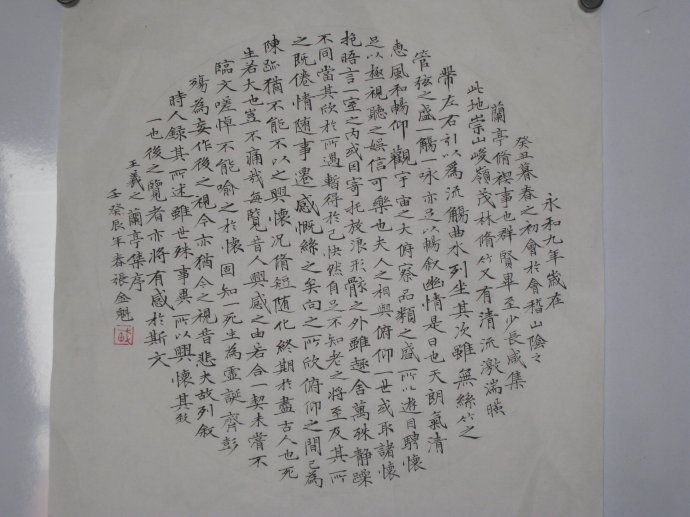 永和九年歲在
癸丑暮春之初會於會稽山陰之
蘭亭脩禊事也群賢畢至少長咸集
此地崇山峻嶺茂林脩竹又有清流激湍暎
帶左右引以為流觴曲水列坐其次雖無絲竹之
管弦之盛一觴一咏亦足以暢叙幽情是日也天朗氣清
惠風和暢仰觀宇宙之大俯察品類之盛所以遊目騁懷
足以極視聽之娛信可樂也夫人之相與俯仰一世或取諸懷
抱晤言一室之內或因寄托放浪形骸之外雖趣舍萬殊静躁
不同當其欣於所遇暫得於己快然自足不知老之將至及其所
之既倦情隨事遷感慨絲之矣向之所欣俯仰之間已為
陳迹猶不能不以之興懷况脩短随化終期於盡古人也死
生若大也豈不痛哉每覽昔人興感之由若合一契未嘗不
臨文嗟悼不能喻之於懷固知一死生為虛誕齊彭
殤為妄作後之視今亦猶今之視昔悲夫故列叙
時人錄其所述雖世殊事異所以興懷其致
一也後之覽者亦將有感於斯文
王羲之蘭亭集序
壬癸辰年春張金魁